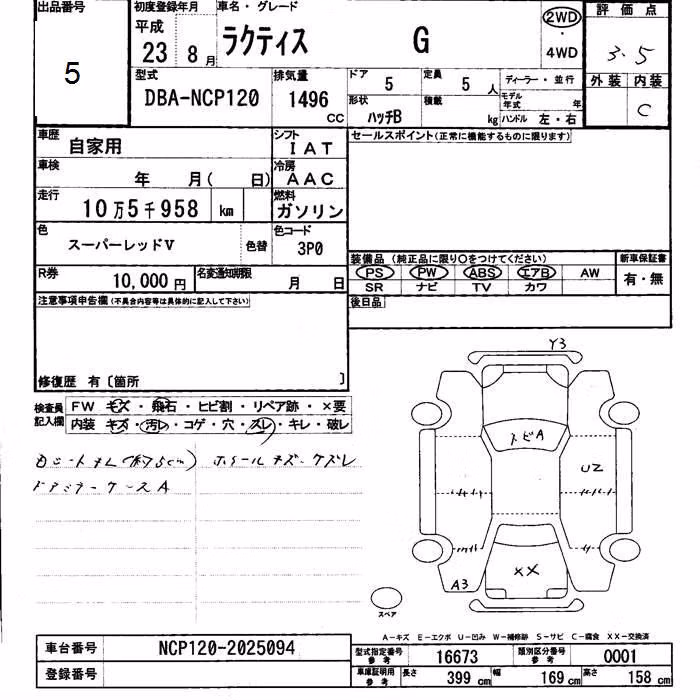 出品番号 初度登録年月 車名・グレード 評価点
平成 2WD
5 23 8月 ラクティス G ・ 3.5
4WD
型式 排気量 ドア 5 定員 5人 ディーラー・並行 外装 内装
DBA-NCP120 1496 CC 形状 ハッチB 積載 kg モデル年式 年 C
ハンドル 左・右
車歴 自家用 シフト IAT セールスポイント(正常に機能するものに限ります)
車検 年 月( 日) 冷房 AAC
走行 10万5千958 km 燃料 ガソリン
色 スーパーレッドV 色替 色コード 3P0
装備品 (純正品に限り○をつけてください) 新車保証書
PS PW ABS エアB AW 有・無
SR ナビ TV カワ
R券 10,000円 名変通知期限 月 日
後日品
注意事項申告欄(不具合内容等は具体的に記入して下さい)
修復歴 有〔箇所 〕
検査員 FW キズ・飛石・ヒビ割・リペア跡・×要
記入欄 内装 キズ・汚レ・コゲ・穴・スレ・キレ・破レ
ホイールキズ・ケズレ
ドアミラーケースA
Y3
トビA
U2
XX
A3
スペア
A-キズ E-エクボ U-凹み W-補修跡 S-サビ C-腐食 XX-交換済
車台番号 NCP120-2025094 型式指定番号 参考 16673 類別区分番号 参考 0001
登録番号 車庫証明用 参考 長さ 399 cm 幅 169 cm 高さ 158 cm